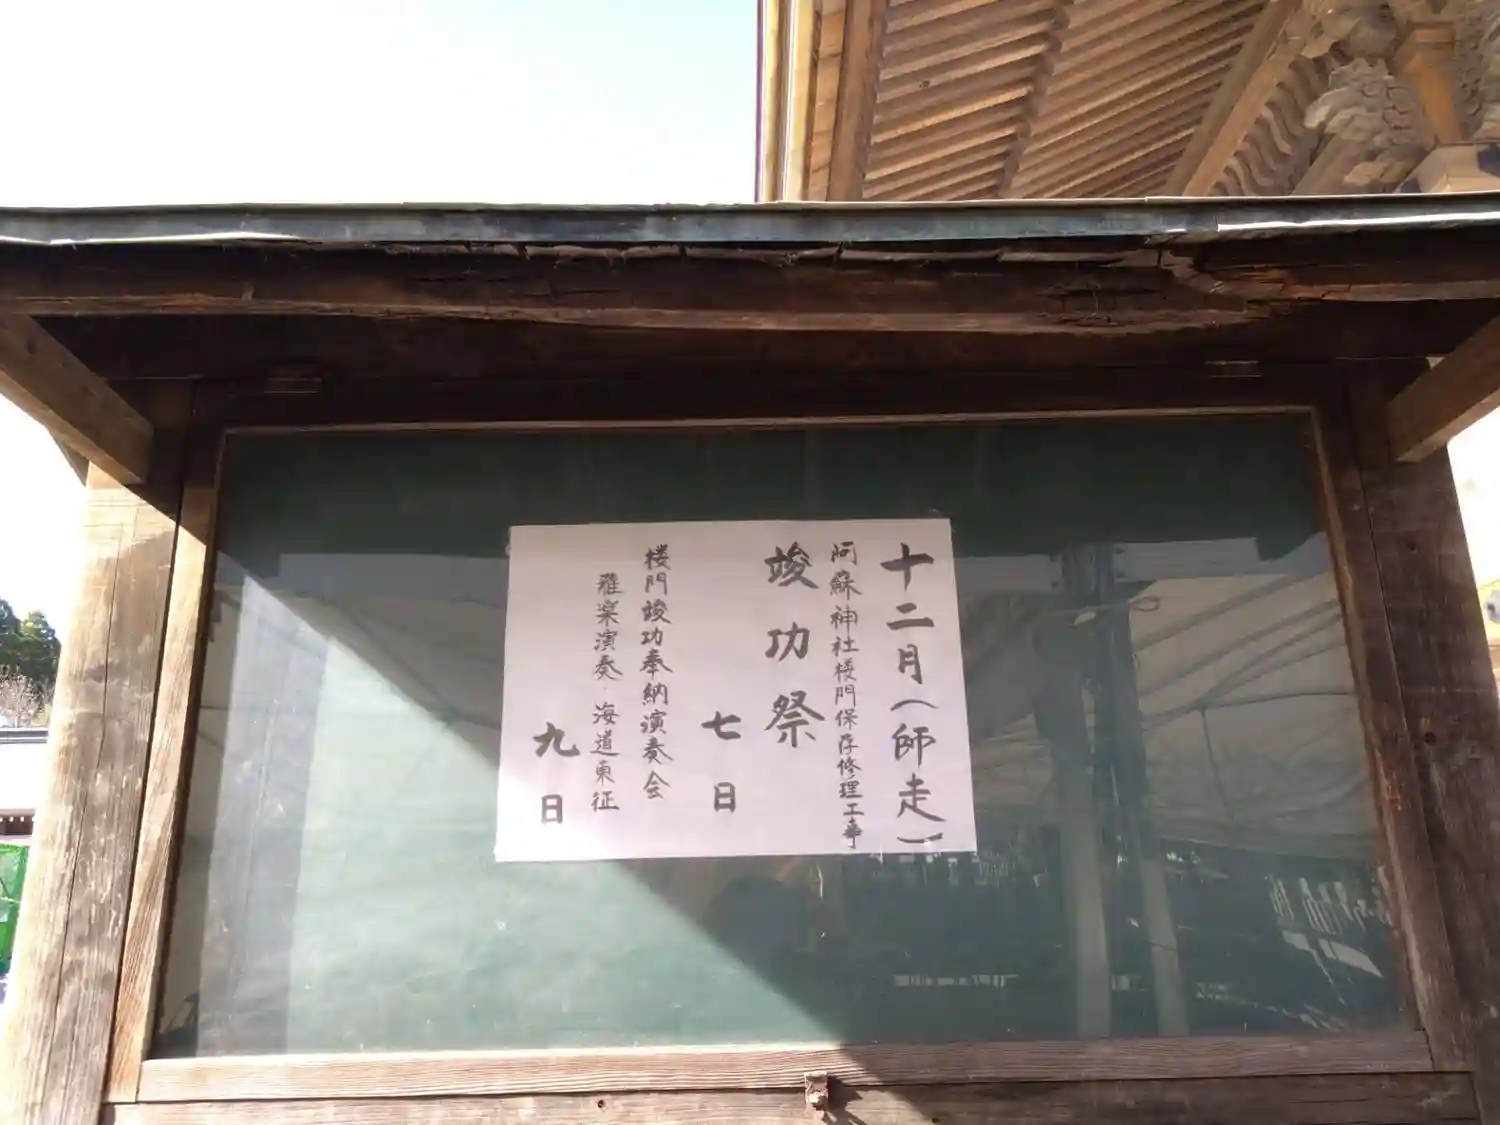 十二月（師走）
阿蘇神社楼門保存修理工事
竣功祭
七日
楼門竣功奉納演奏会
雅楽演奏・海道東征
九日